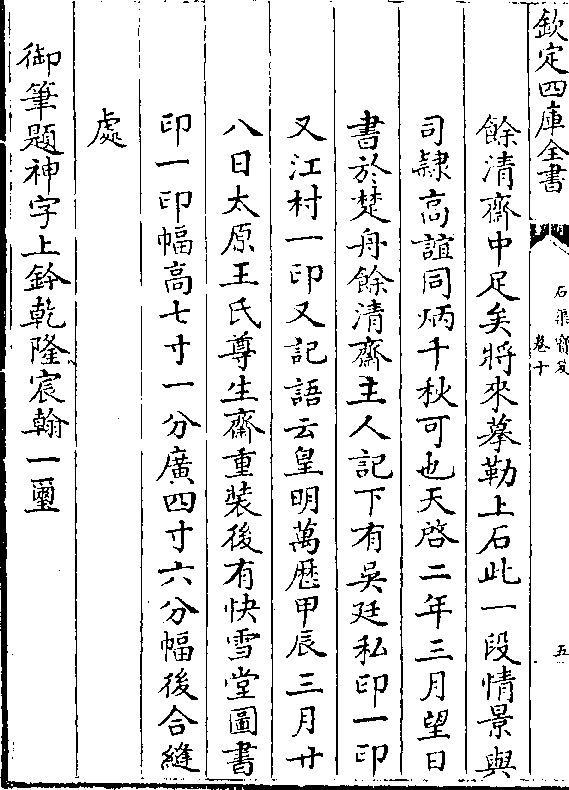 欽定四庫全書
石渠寶笈
卷十
五
餘清齋中足矣將來摹勒上石此一段情景與
司隸高誼同炳千秋可也天啓二年三月望日
書於楚舟餘清齋主人記下有吳廷私印一印
又江村一印又記語云皇明萬歷甲辰三月廿
八日太原王氏尊生齋重裝後有快雪堂圖書
印一印幅高七寸一分廣四寸六分幅後合縫
處
御筆題神字上鈐乾隆宸翰一璽